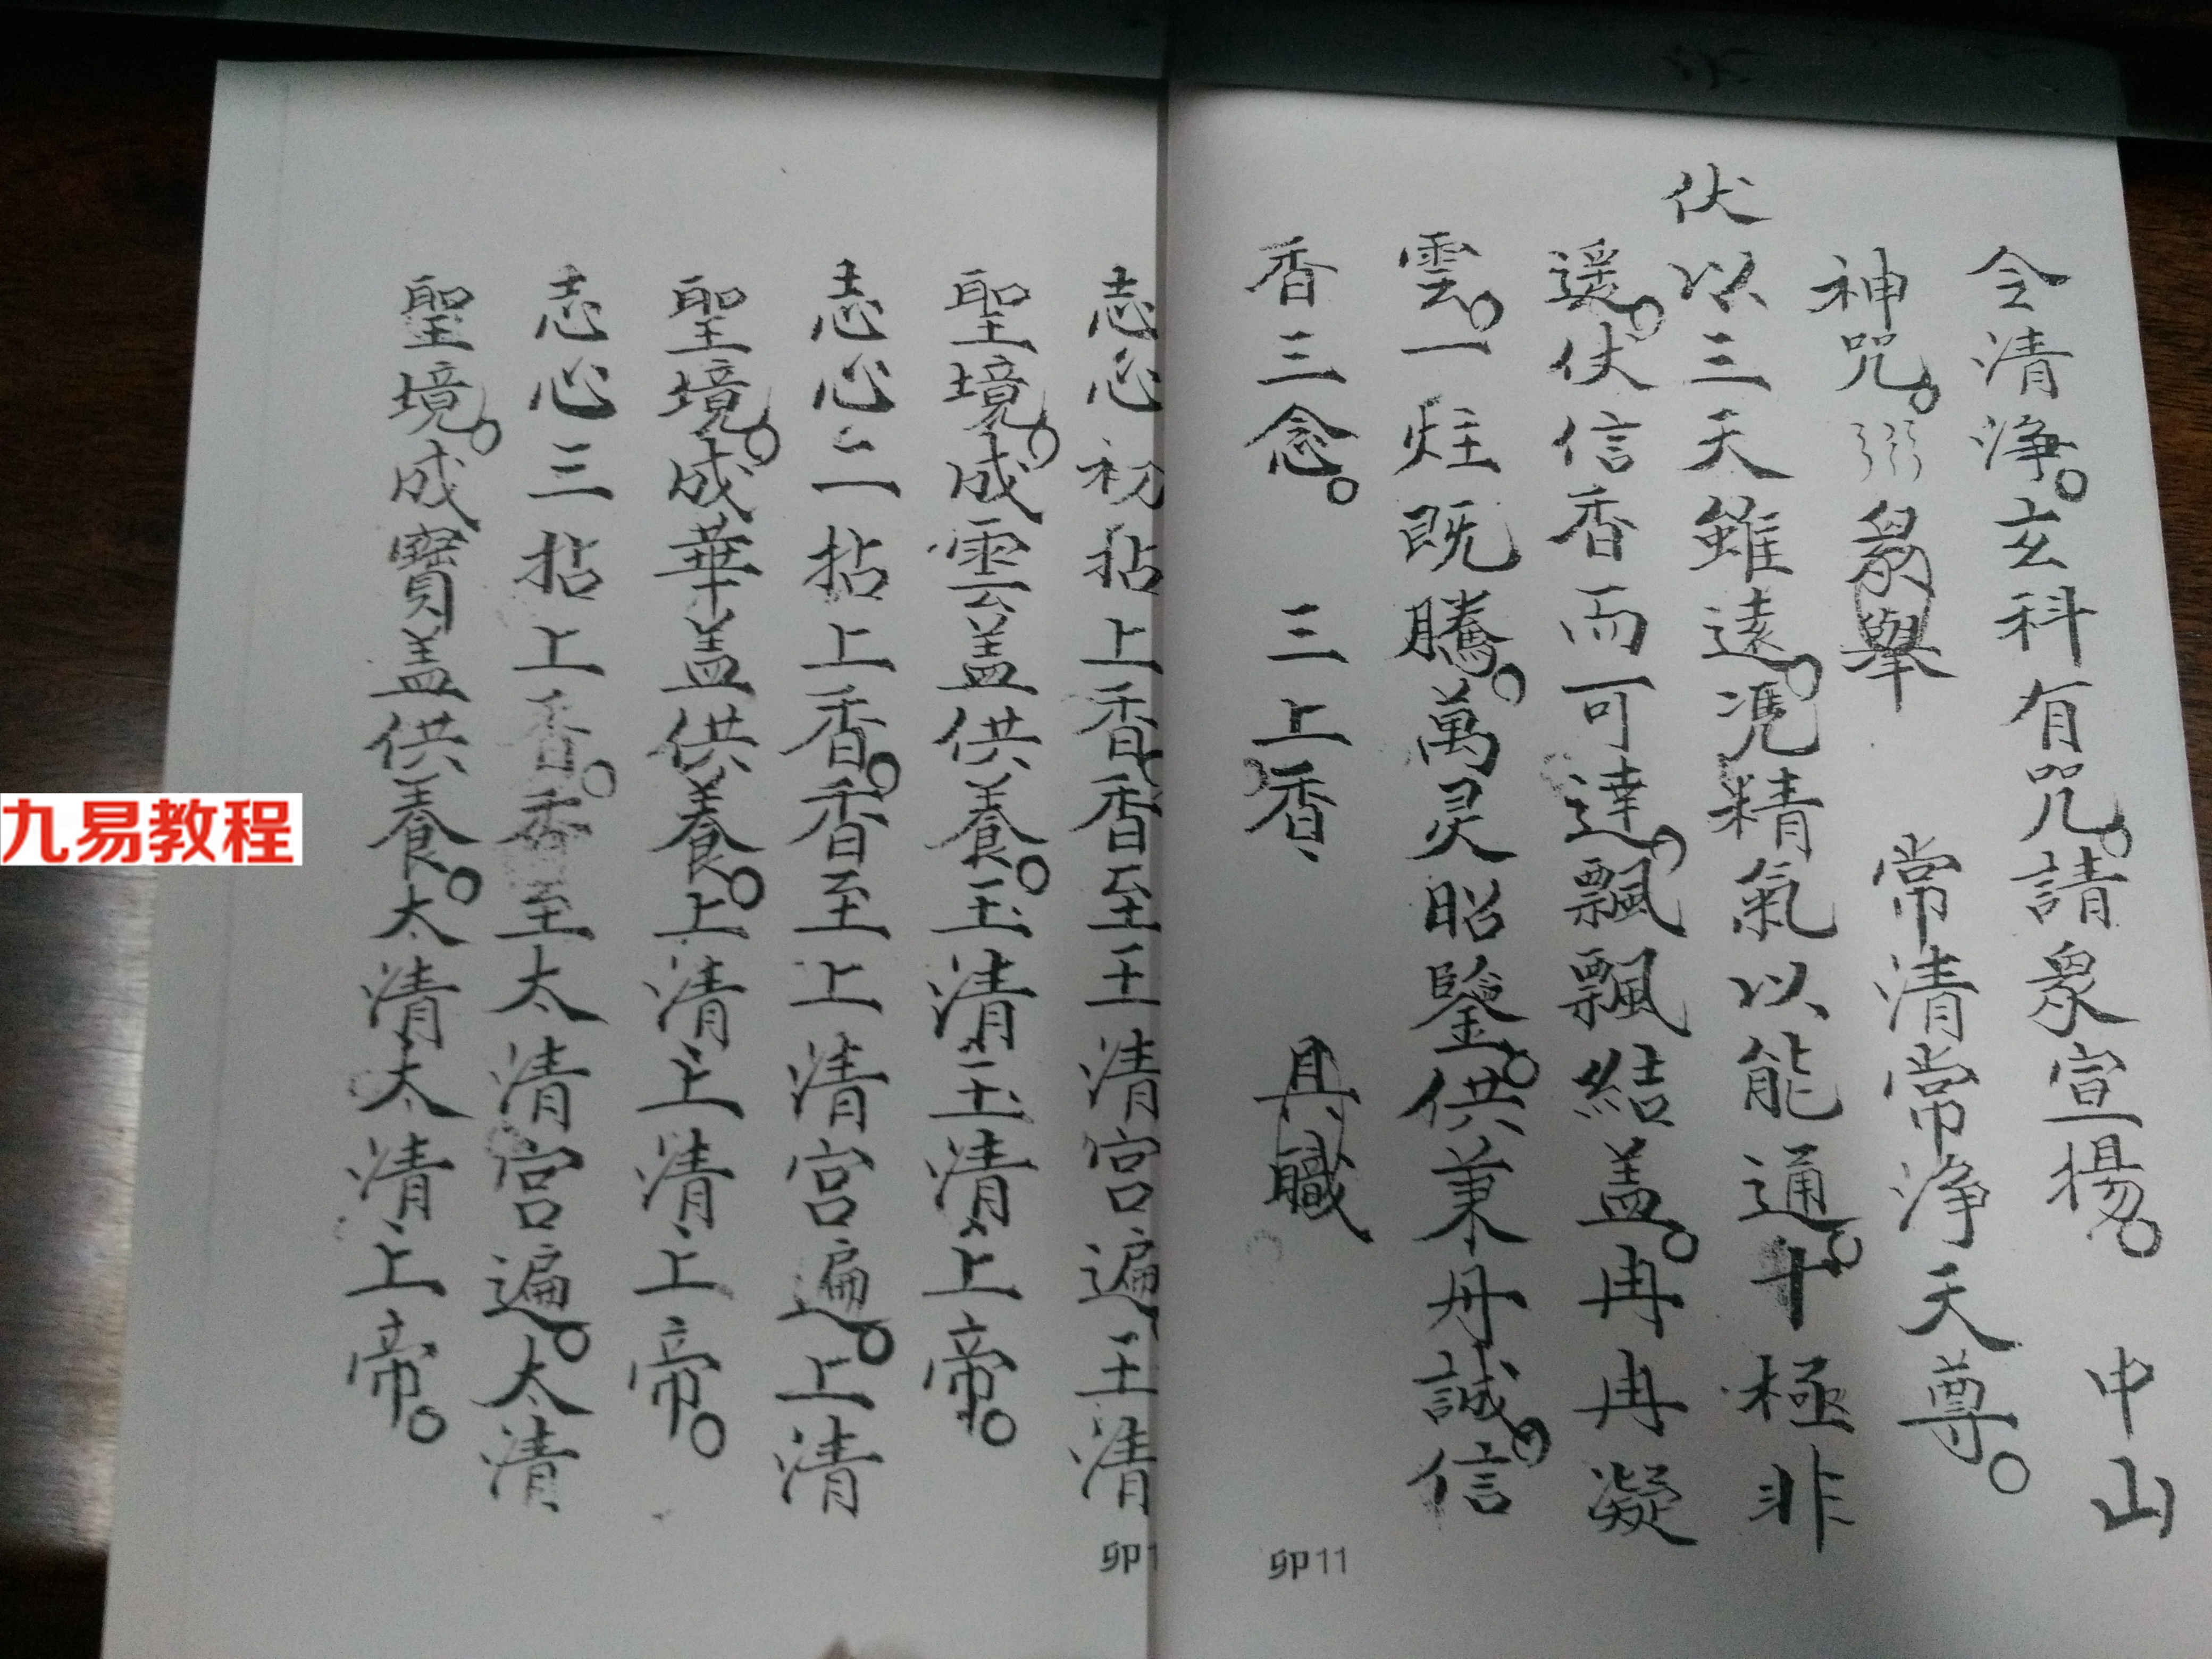 令清淨。玄科有咒。請衆宣揚。中山
神咒。衆舉 常清常淨天尊。
伏以三天雖遠。凴精氣以能通。十極非
遥。仗信香而可達。飄飄結盖。冉冉凝
雲。一炷既騰。萬灵昭鑒。供兼丹誠。信
香三念。 三上香、 具職
卯11
志心初拈上香。香至玉清宫遍。玉清
聖境。成雲盖供養。玉清玉清上帝。
志心二拈上香。香至上清宫遍。上清
聖境。成華盖供養。上清上清上帝。
志心三拈上香。香至太清宫遍。太清
聖境。成寶盖供養。太清太清上帝。
卯1
九易教程